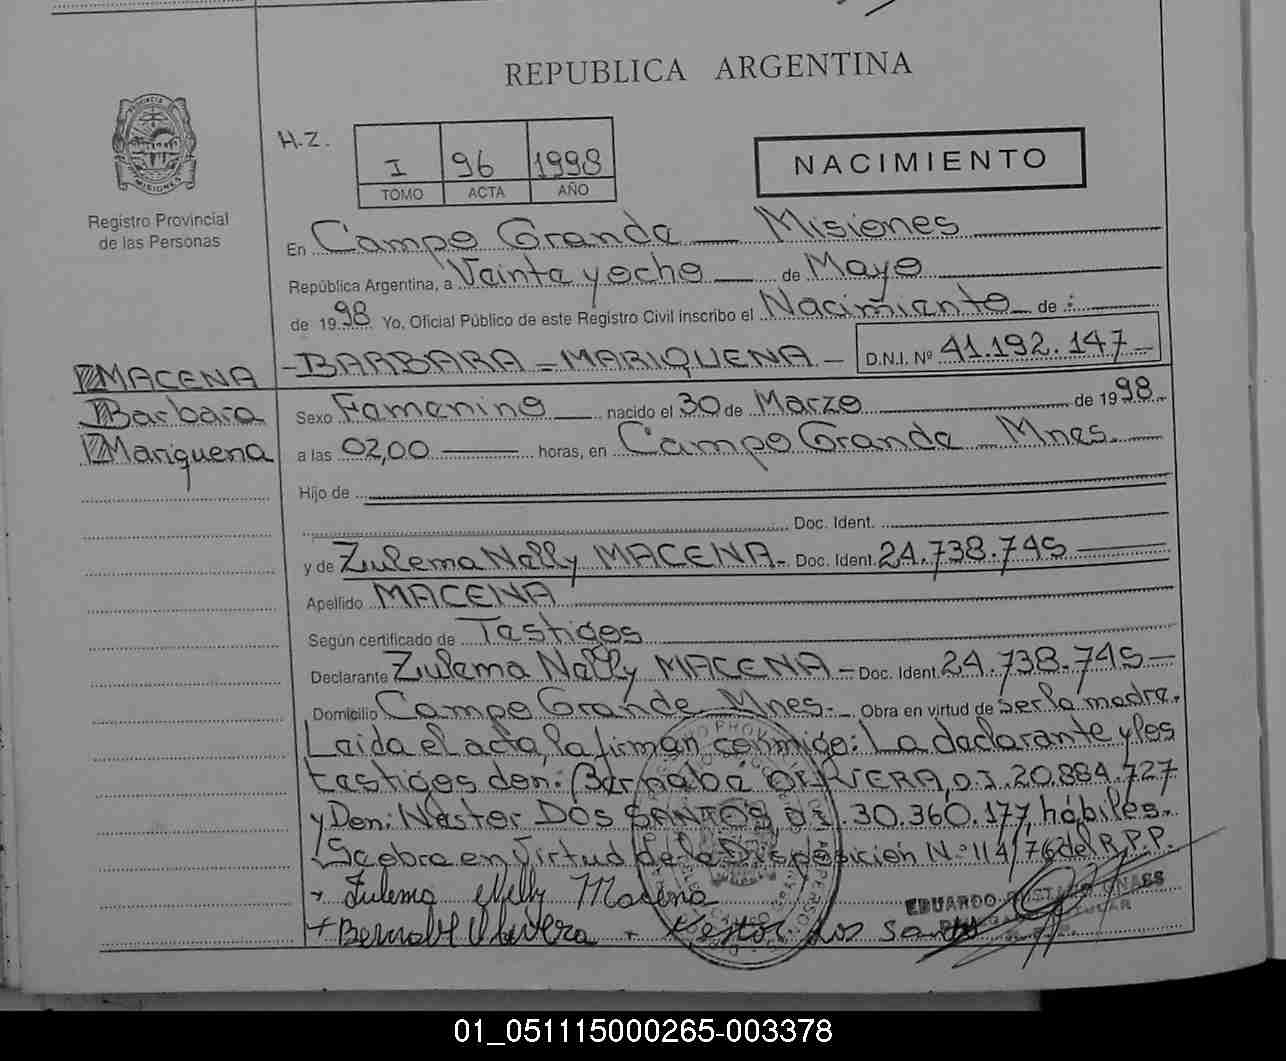 REPUBLICA ARGENTINA
PROVINCIA
MISIONES
Registro Provincial
de las Personas
H.Z.
I 96 1998
TOMO ACTA AÑO
NACIMIENTO
En Campo Grande Misiones
República Argentina, a Veinte y ocho de Mayo
de 1998 Yo, Oficial Público de este Registro Civil inscribo el Nacimiento de :
- BARBARA - MARIQUENA - D.N.I. Nº 41.192.147
MACENA
Barbara
Mariquena
Sexo Femenino nacido el 30 de Marzo de 1998
a las 02,00 horas, en Campo Grande Mnes.
Hijo de
Doc. Ident.
y de Zulema Nelly MACENA - Doc. Ident. 24.738.745
Apellido MACENA
Según certificado de Testigos
Declarante Zulema Nelly MACENA - Doc. Ident. 24.738.745 -
Domicilio Campo Grande Mnes. Obra en virtud de ser la madre.
Leida el acta, la firman conmigo: La declarante y los
testigos don: Bernabé OLIVERA, D.I. 20.884.727
y Don: Nester DOS SANTOS, D.I. 30.360.177, hábiles.
Se obra en virtud de la Disposición N.º 114/76 del R.P.P.
Zulema Nelly Macena
+ Bernabe Olivera + Nestor dos Santos
EDUARDO
01_051115000265-003378